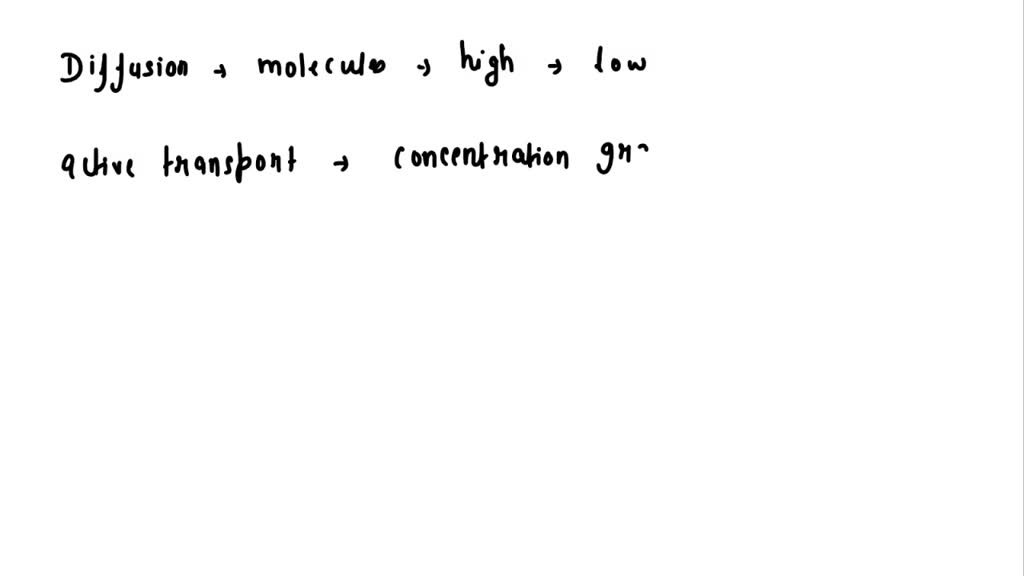 Diffusion → molecules → high → low
active transport → concentration gr